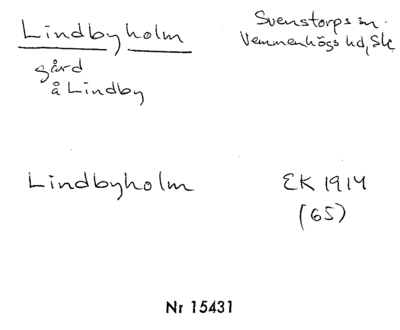 Lindbyholm
Svenstorps sn.
Vemmenhögs hd, Sk
gård
å Lindby
Lindbyholm
EK 1914
(65)
Nr 15431